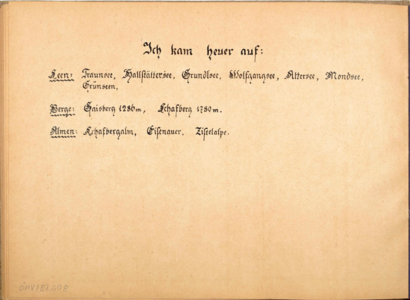 Ich kam heuer auf:
Seen: Traunsee, Hallstättersee, Grundlsee, Wolfgangsee, Attersee, Mondsee,
Grünseen.
Berge: Gaisberg 1286 m, Schafberg 1780 m.
Almen: Schafbergalm, Eisenauer, Zistelalpe.